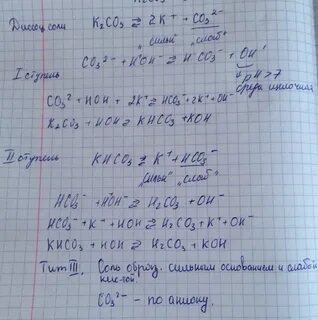 Диссоц. соли K₂CO₃ ⇄ 2K⁺ + CO₃²⁻
"сильн" "слаб"
CO₃²⁻ + H⁺OH⁻ ⇄ HCO₃⁻ + OH⁻
I ступень
pH>7
среда щелочная
CO₃²⁻ + HOH + 2K⁺ ⇄ HCO₃⁻ + 2K⁺ + OH⁻
K₂CO₃ + HOH ⇄ KHCO₃ + KOH
II ступень
KHCO₃ ⇄ K⁺ + HCO₃⁻
"сильн" "слаб"
HCO₃⁻ + H⁺OH⁻ ⇄ H₂CO₃ + OH⁻
HCO₃⁻ + K⁺ + HOH ⇄ H₂CO₃ + K⁺ + OH⁻
KHCO₃ + HOH ⇄ H₂CO₃ + KOH
Тип III. Соль образ. сильным основанием и слабой
кис-той.
CO₃²⁻ – по аниону.